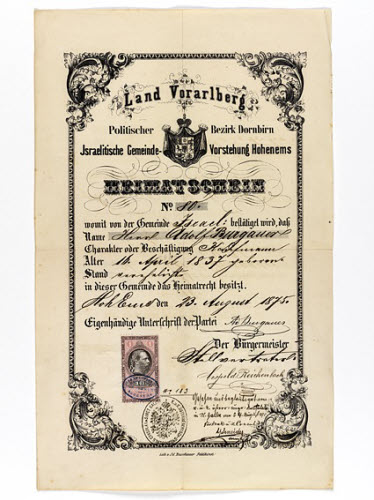 Land Vorarlberg.
Politischer Bezirk Dornbirn
Israelitische Gemeinde-Vorstehung Hohenems
HEIMATSCHEIN
No 10.
womit von der Gemeinde Israel: bestätiget wird, daß
Name Herr Adolf Burgauer
Charakter oder Beschäftigung Kaufmann
Alter 14. April 1837 geboren
Stand verehelicht
in dieser Gemeinde das Heimatrecht besitzt.
HohEms den 23. August 1875.
Eigenhändige Unterschrift der Partei Ad. Burgauer
Der Bürgermeister
Stellvertreter
Leopold Reichenbach